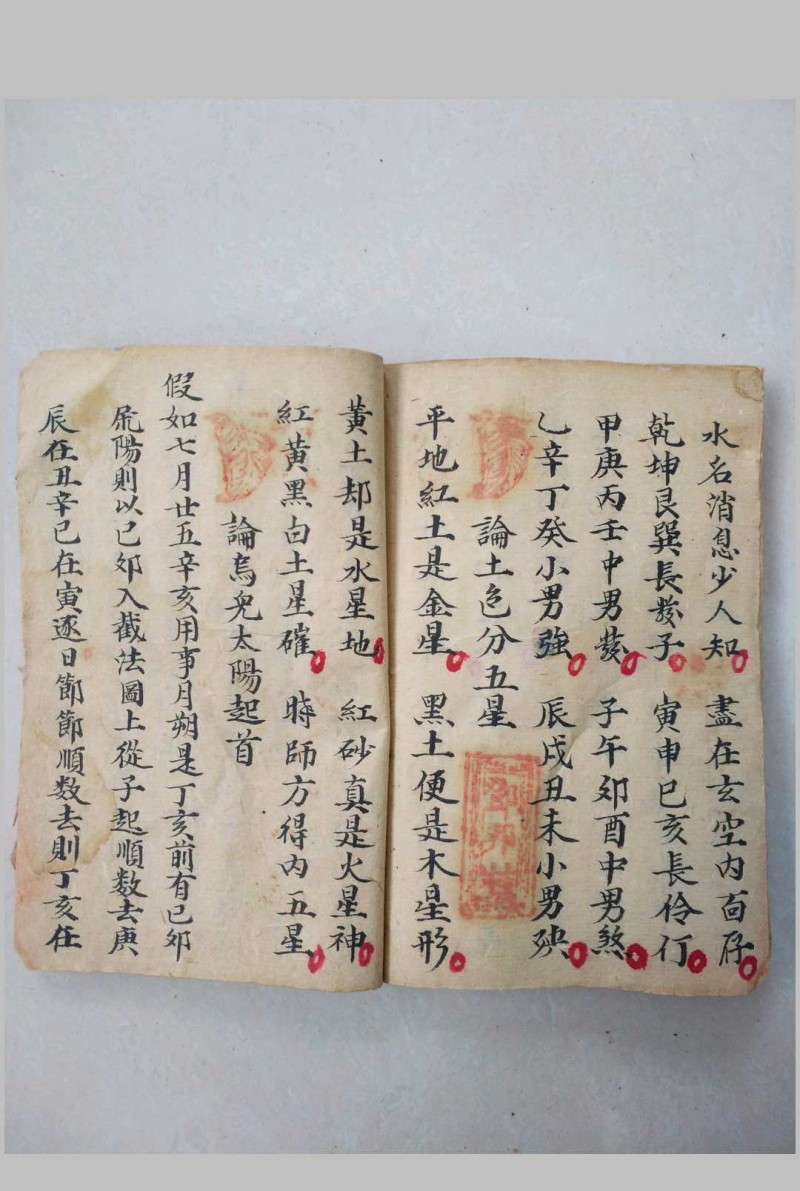 水名消息少人知　盡在玄空內面存
乾坤艮巽長發子　寅申巳亥長伶仃
甲庚丙壬中男發　子午卯酉中男煞
乙辛丁癸小男強　辰戌丑未小男殃
論土色分五星
平地紅土是金星　黑土便是木星形
黃土却是水星地　紅砂真是火星神
紅黃黑白土星確　時師方得內五星
論烏兔太陽起首
假如七月廿五辛亥用事月朔是丁亥前有已卯
陽則以已卯入截法圖上從子起順数去庚
辰在丑辛巳在寅逐日節節順数去則丁亥在